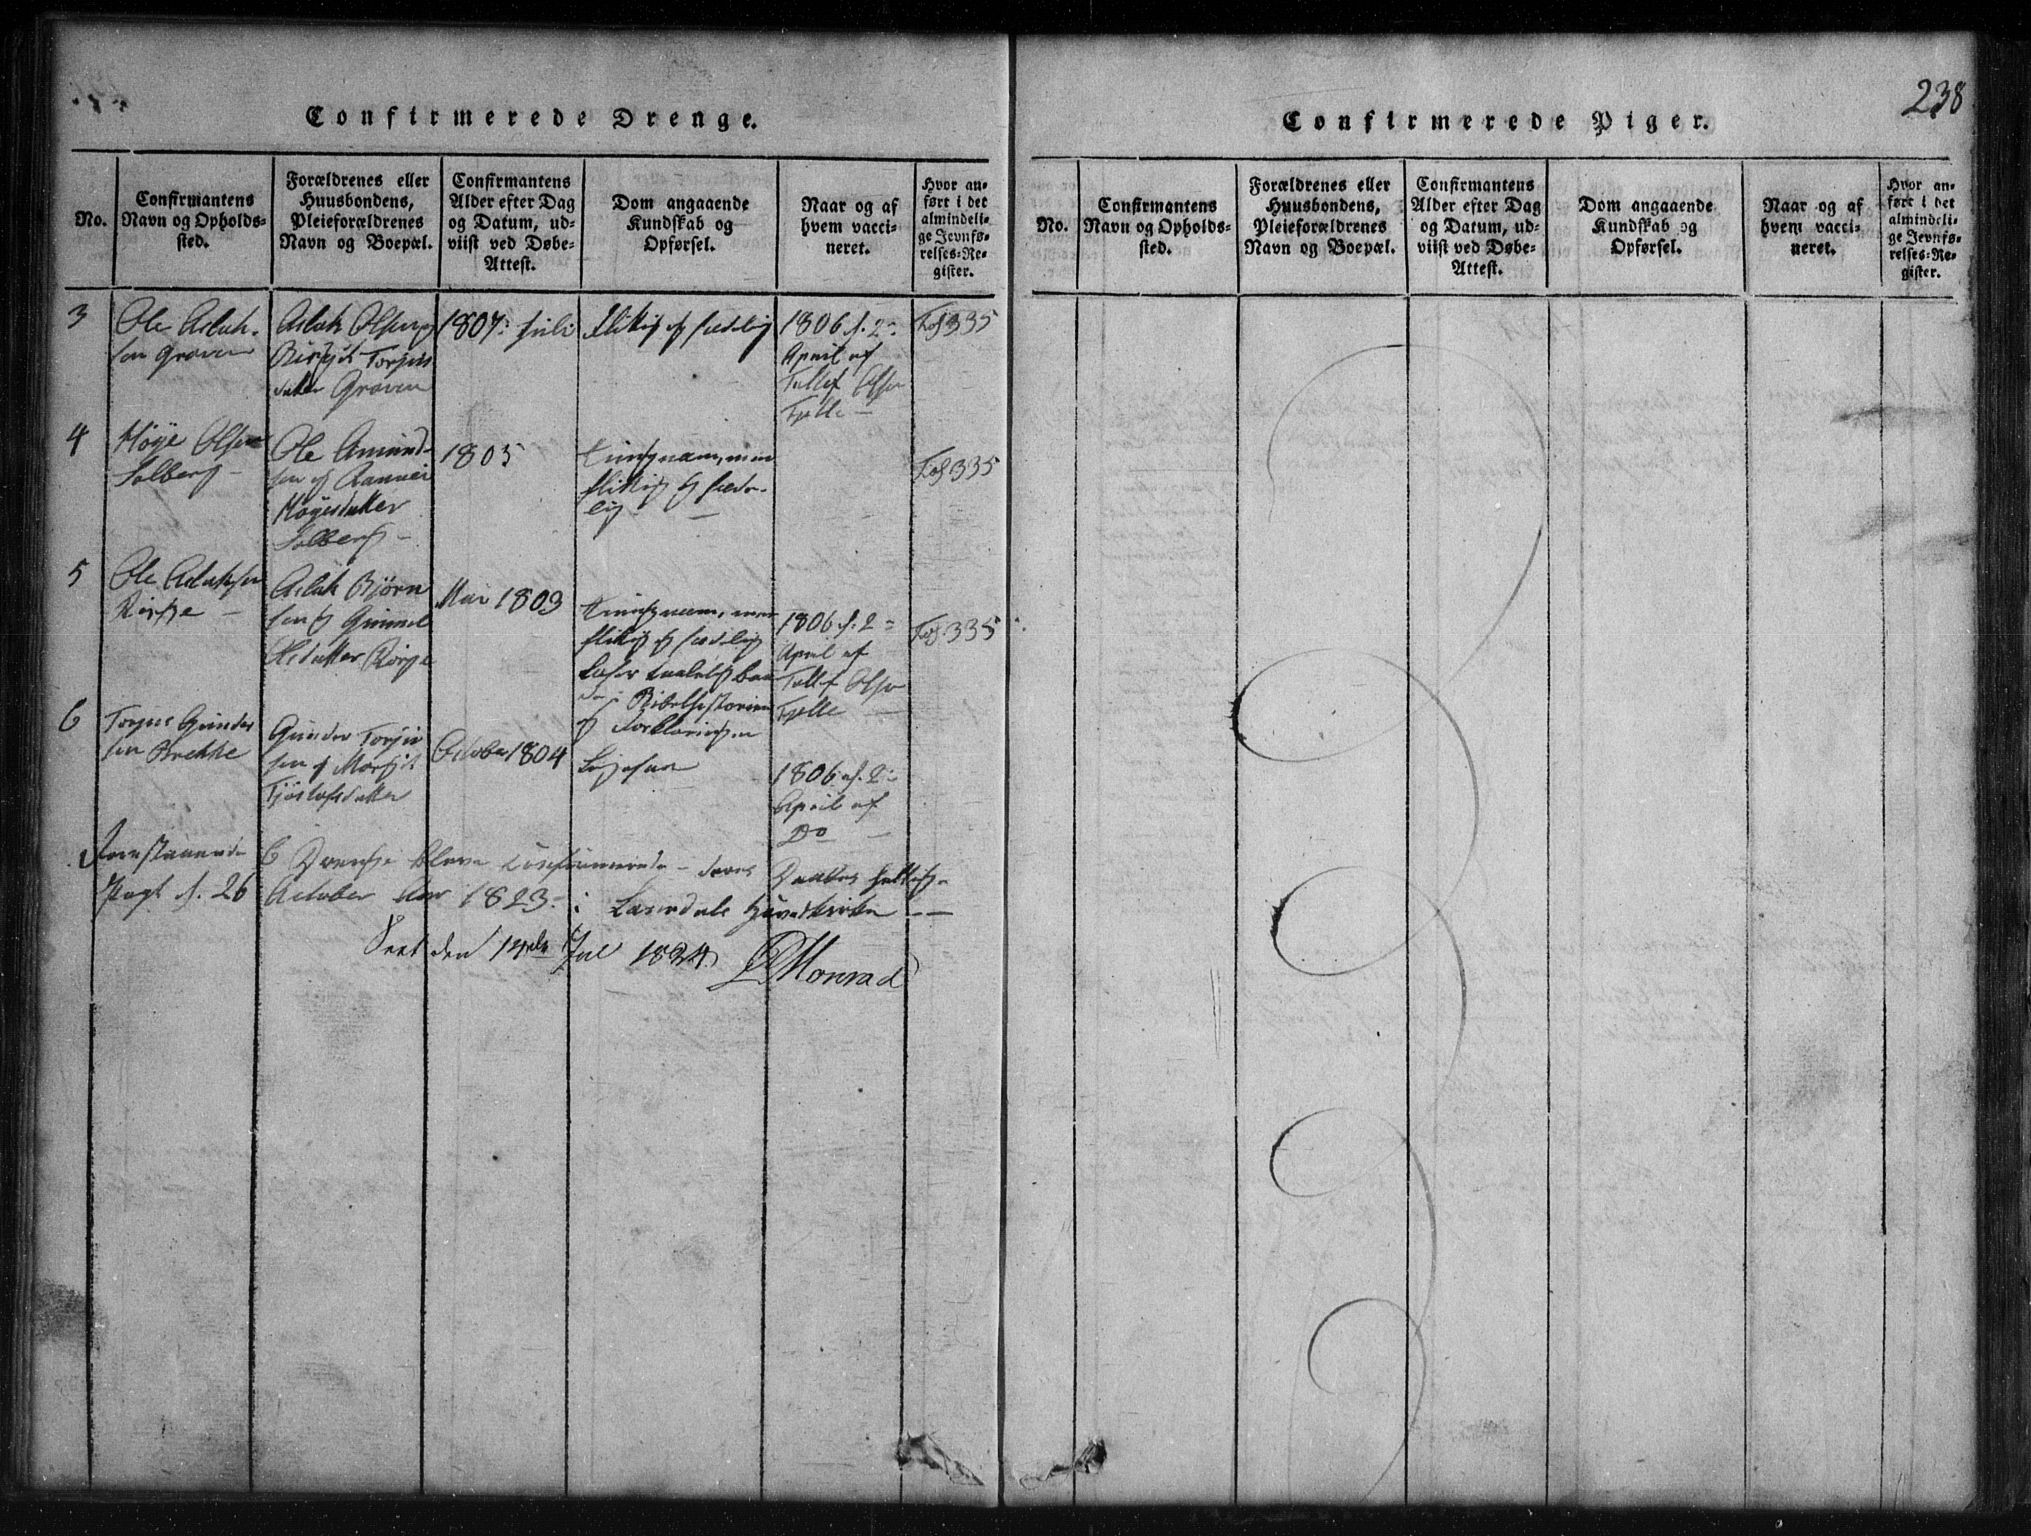 238
Confirmerede Drenge.
No.
Confirmantens
Navn og Opholds-
sted.
Forældrenes eller
Huusbondens,
Pleieforældrenes
Navn og Boepæl.
Confirmantens
Alder efter Dag
og Datum, ud-
viist ved Døbe-
Attest.
Dom angaaende
Kundskab og
Opførsel.
Naar og af
hvem vacci-
neret.
Hvor an-
ført i det
almindeli-
ge Jevnfø-
relses-Re-
gister.
3
Ole Aslak-
sen Graven
Aslak Olsen
Birgit Torjus
datter Graven
1807 Juli
flittig og sædelig
1806 d. 2
April af
Tollef Olsen
Fol 335
4
Høye Olsen
Solberg
Ole Amund-
sen og Rannei
Høyesdatter
Solberg
1805
tungnæm, men
flittig og sæde-
lig
Fol 335
5
Ole Aslaksen
Aslak Bjørn
sen og Gunnil
Olsdatter
Mai 1803
tungnæm, men
flittig og sædelig
Bibelhistorien
og Forklaringen
1806 d. 2
April af
Tollef Olsen
Fol. 335
6
Torjus Gunder
sen Brekke
Gunder Torjus
sen og Margit
Tjøstolfsdatter
October 1804
Ligesaa
1806 d. 2
April af
Do
Forestaaende 6 Drenge bleve confirmerede - deres Daabes
Pagt d. 26 October Aar 1823 i Laurdals Hovedkirke
Seet den 14de Jul 1824. Monrad
Confirmerede Piger.
No.
Confirmantens
Navn og Opholds-
sted.
Forældrenes eller
Huusbondens,
Pleieforældrenes
Navn og Boepæl.
Confirmantens
Alder efter Dag
og Datum, ud-
viist ved Døbe-
Attest.
Dom angaaende
Kundskab og
Opførsel.
Naar og af
hvem vacci-
neret.
Hvor an-
ført i det
almindeli-
ge Jevnfø-
relses-Re-
gister.